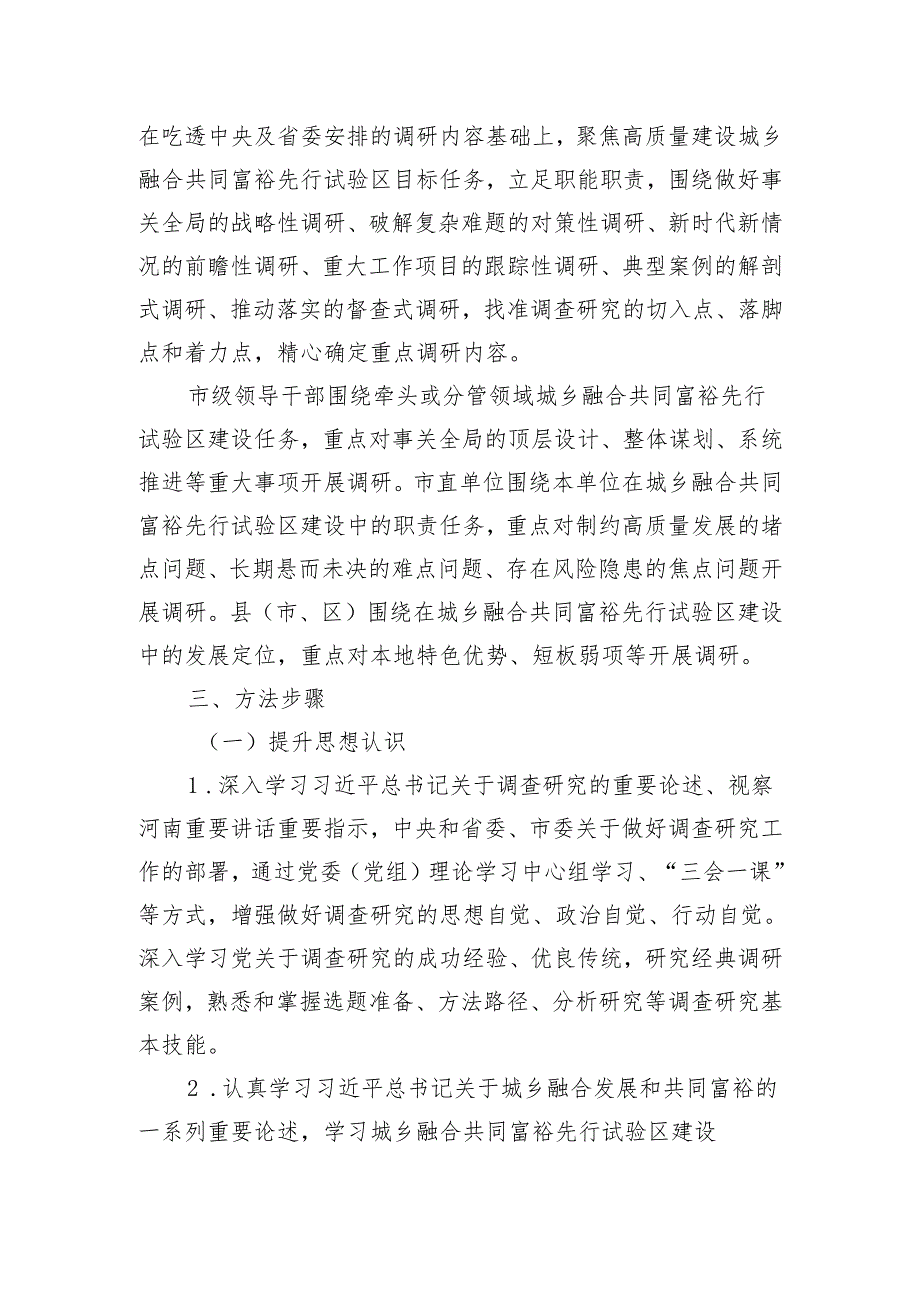 在吃透中央及省委安排的调研内容基础上，聚焦高质量建设城乡
融合共同富裕先行试验区目标任务，立足职能职责，围绕做好事
关全局的战略性调研、破解复杂难题的对策性调研、新时代新情
况的前瞻性调研、重大工作项目的跟踪性调研、典型案例的解剖
式调研、推动落实的督查式调研，找准调查研究的切入点、落脚
点和着力点，精心确定重点调研内容。
市级领导干部围绕牵头或分管领域城乡融合共同富裕先行
试验区建设任务，重点对事关全局的顶层设计、整体谋划、系统
推进等重大事项开展调研。市直单位围绕本单位在城乡融合共同
富裕先行试验区建设中的职责任务，重点对制约高质量发展的堵
点问题、长期悬而未决的难点问题、存在风险隐患的焦点问题开
展调研。县（市、区）围绕在城乡融合共同富裕先行试验区建设
中的发展定位，重点对本地特色优势、短板弱项等开展调研。
三、方法步骤
（一）提升思想认识
1.深入学习习近平总书记关于调查研究的重要论述、视察
河南重要讲话重要指示，中央和省委、市委关于做好调查研究工
作的部署，通过党委（党组）理论学习中心组学习、“三会一课”
等方式，增强做好调查研究的思想自觉、政治自觉、行动自觉。
深入学习党关于调查研究的成功经验、优良传统，研究经典调研
案例，熟悉和掌握选题准备、方法路径、分析研究等调查研究基
本技能。
2.认真学习习近平总书记关于城乡融合发展和共同富裕的
一系列重要论述，学习城乡融合共同富裕先行试验区建设